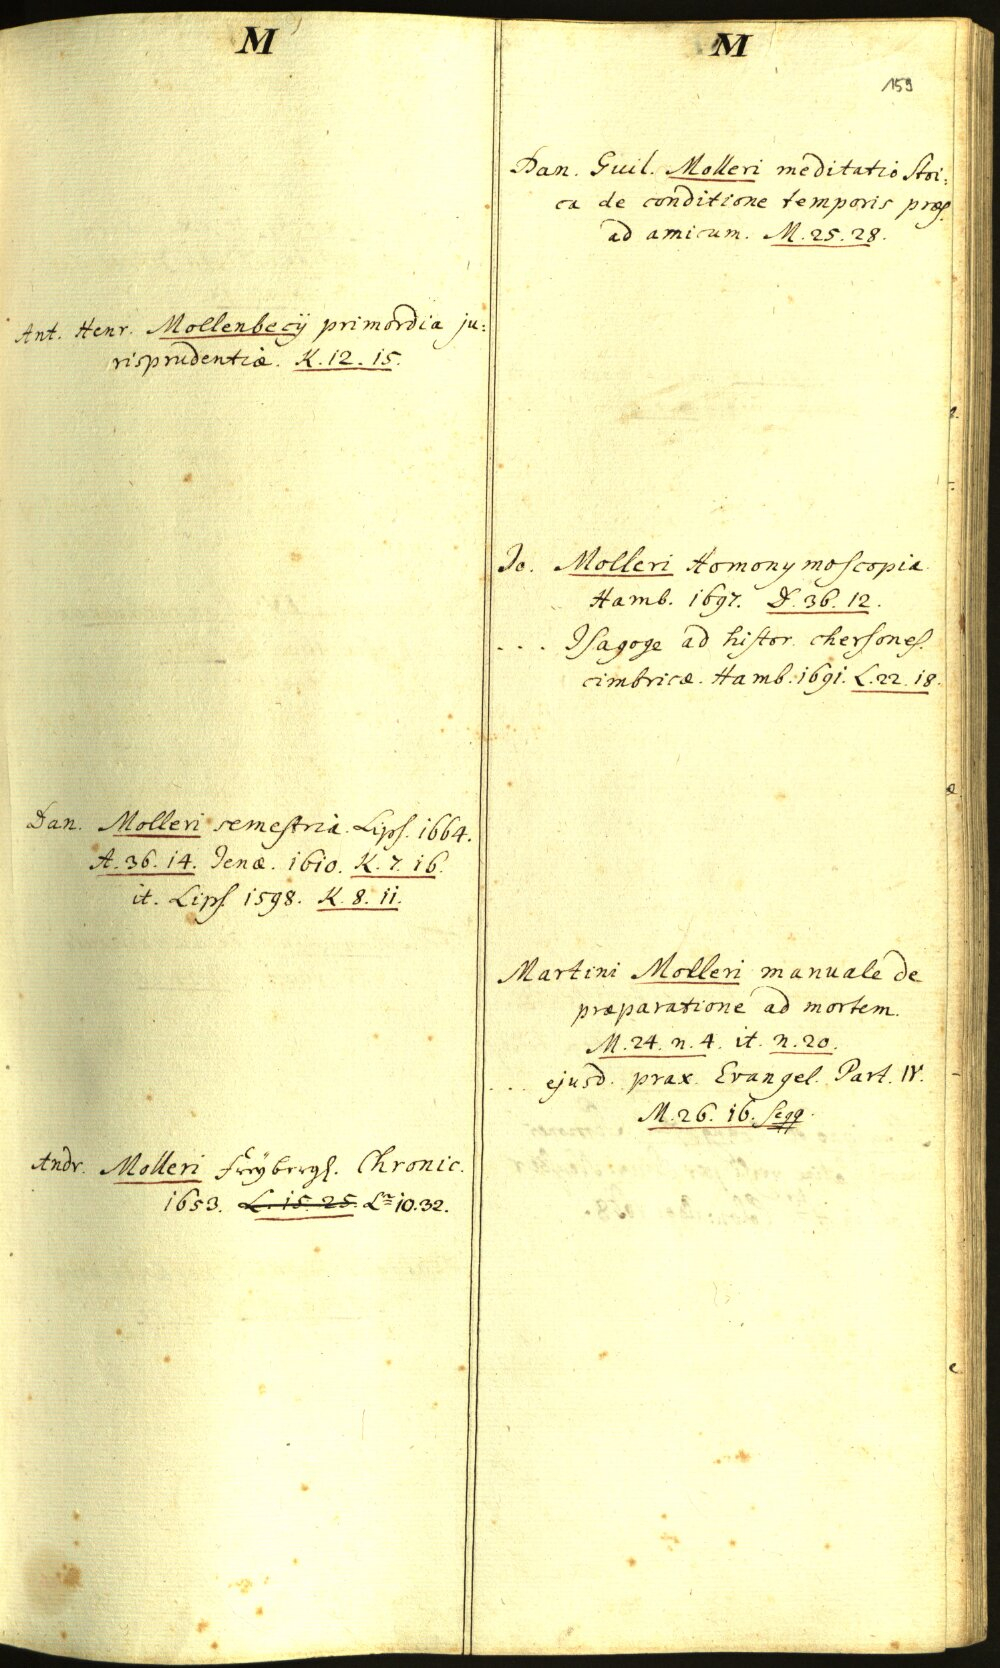 M
Ant. Henr. Mollenbecÿ primordia ju:
risprudentiæ. K. 12. 15.
Dan. Molleri semestria. Lips. 1664.
A. 36. 14. Jenæ. 1610. K. 7. 16.
it. Lips. 1598. K. 8. 11.
Andr. Molleri Freÿbergs. Chronic.
1653. L. 15. 25. L. 10. 32.
M
159
Dan. Guil. Molleri meditatio Stoi:
ca de conditione temporis præs.
ad amicum. M. 25. 28.
Jo. Molleri Homonymoscopia
Hamb. 1697. D. 36. 12.
. . . Isagoge ad histor. chersones.
cimbricæ. Hamb. 1691. L. 22. 18.
Martini Molleri manuale de
præparatione ad mortem.
M. 24. n. 4. it. n. 20.
. . . ejusd. prax. Evangel. Part. IV.
M. 26. 16. seqq.